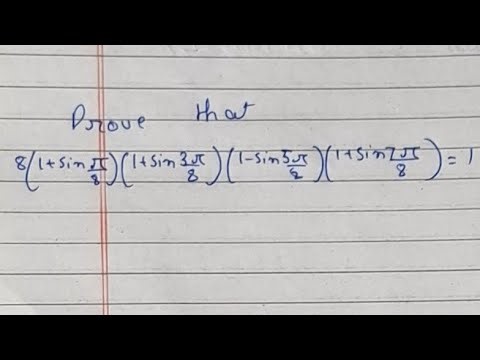 Prove that
8(1+sin π/8)(1+sin 3π/8)(1-sin 5π/2)(1+sin 7π/8) = 1